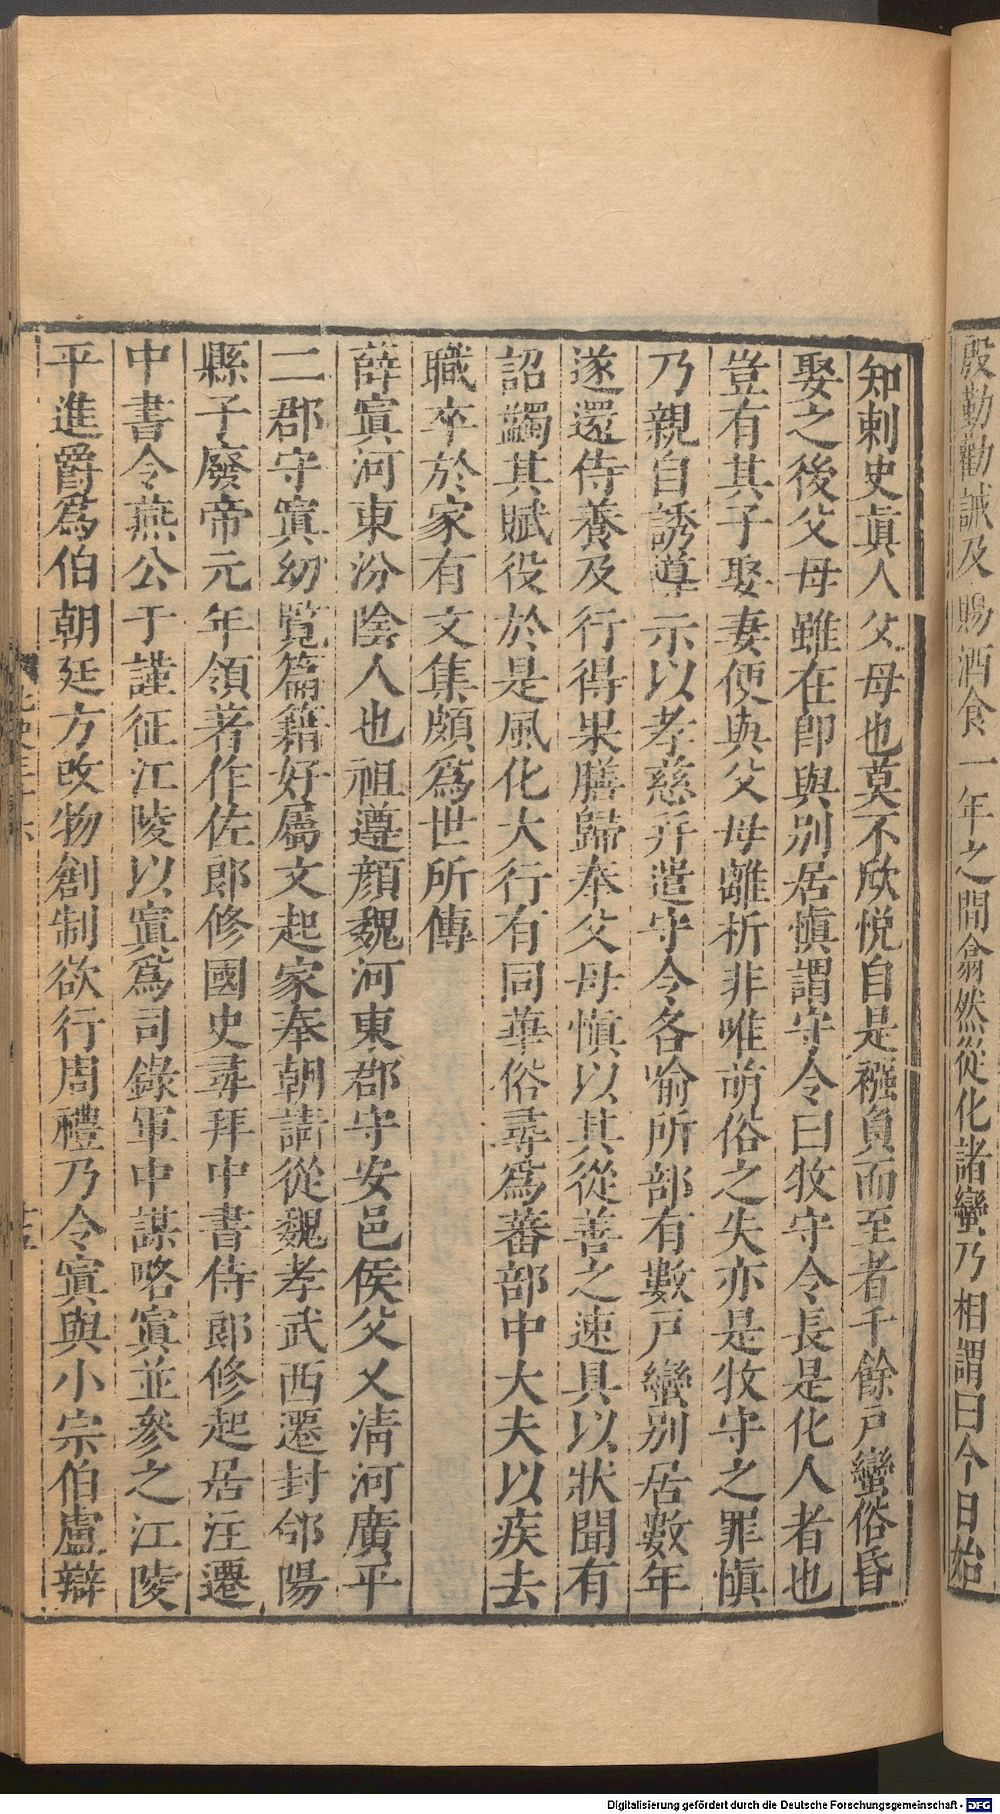 殷勤勸誡及賜酒食一年之間翕然從化諸蠻乃相謂曰今日始
知剌史眞人父母也莫不欣悅自是襁負而至者千餘戸蠻俗昏
娶之後父母雖在卽與别居愼謂守令曰牧守令長是化人者也
豈有其子娶妻便與父母離析非唯萌俗之失亦是牧守之罪愼
乃親自誘導示以孝慈并遣守令各喻所部有數戸蠻别居數年
遂還侍養及行得果膳歸奉父母愼以其從善之速具以狀聞有
詔蠲其賦役於是風化大行有同華俗尋爲蕃部中大夫以疾去
職卒於家有文集頗爲世所傳
薛寘河東汾陰人也祖遵顔魏河東郡守安邑侯父乂淸河廣平
二郡守寘幼覽篇籍好屬文起家奉朝請從魏孝武西遷封郃陽
縣子廢帝元年領著作佐郎修國史尋拜中書侍郎修起居注遷
中書令燕公于謹征江陵以寘爲司錄軍中謀略寘並參之江陵
平進爵爲伯朝廷方改物創制欲行周禮乃令寘與小宗伯盧辯
Digitalisierung gefördert durch die Deutsche Forschungsgemeinschaft - DFG